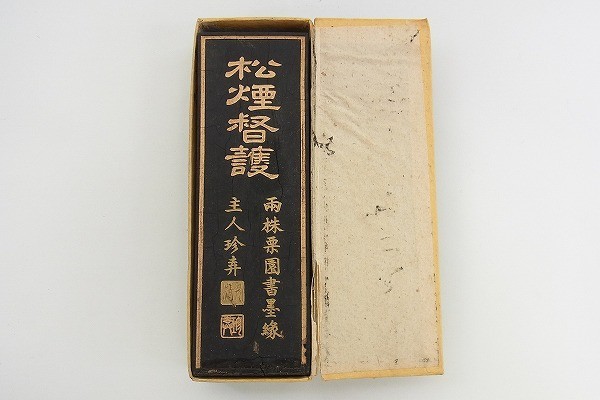 松煙督護
兩株栗園書墨緣
主人珍弆